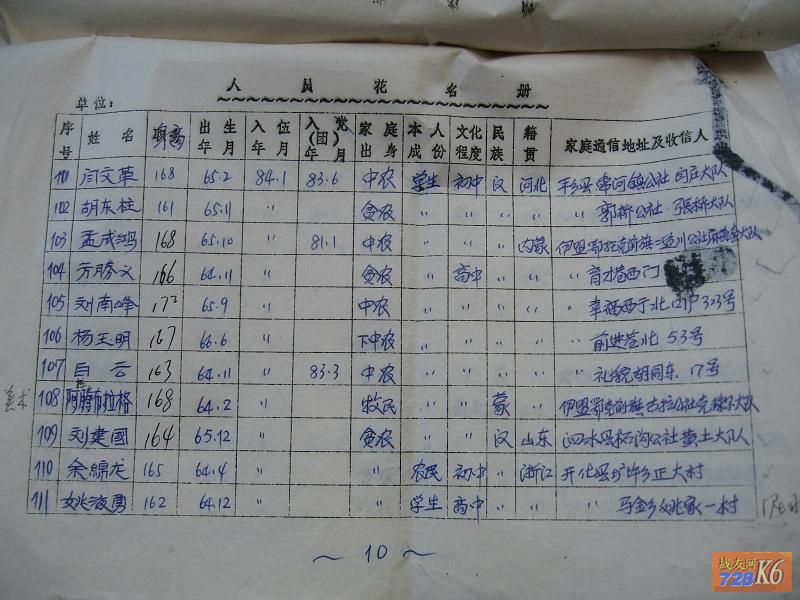 人员花名册
单位：
序号 姓名 身高 出生年月 入伍年月 入党(团)年月 家庭出身 本人成份 文化程度 民族 籍贯 家庭通信地址及收信人
101 闫文革 168 65.2 84.1 83.6 中农 学生 初中 汉 河北 平乡县 河镇公社 闫庄大队
102 胡东柱 161 65.11 〃 贫农 〃 〃 〃 〃 〃 郭桥公社 张桥大队
103 孟成鸿 168 65.10 〃 81.1 中农 〃 〃 〃 内蒙 伊盟鄂托克前旗 公社 大队
104 166 64.11 〃 贫农 〃 高中 〃 〃 〃 育才巷西门
105 刘南峰 172 65.9 〃 中农 〃 〃 〃 〃 〃 幸福西 北 303号
106 杨玉明 167 66.6 〃 下中农 〃 〃 〃 〃 〃 前进巷北 53号
107 白云 163 64.11 〃 83.3 中农 〃 〃 〃 〃 〃 礼貌胡同东 17号
美术 108 阿腾布拉格 168 64.2 〃 牧民 〃 〃 蒙 〃 伊盟鄂 前旗吉拉公社 大队
109 刘建國 164 65.12 〃 贫农 〃 〃 汉 山东 泗水县 石沟公社黄土大队
110 余綿龙 165 64.4 〃 〃 农民 初中 〃 浙江 开化县 乡正大村
111 姚 勇 162 64.12 〃 学生 高中 〃 〃 〃 马金乡姚家一村
～ 10 ～
战友网
728K6